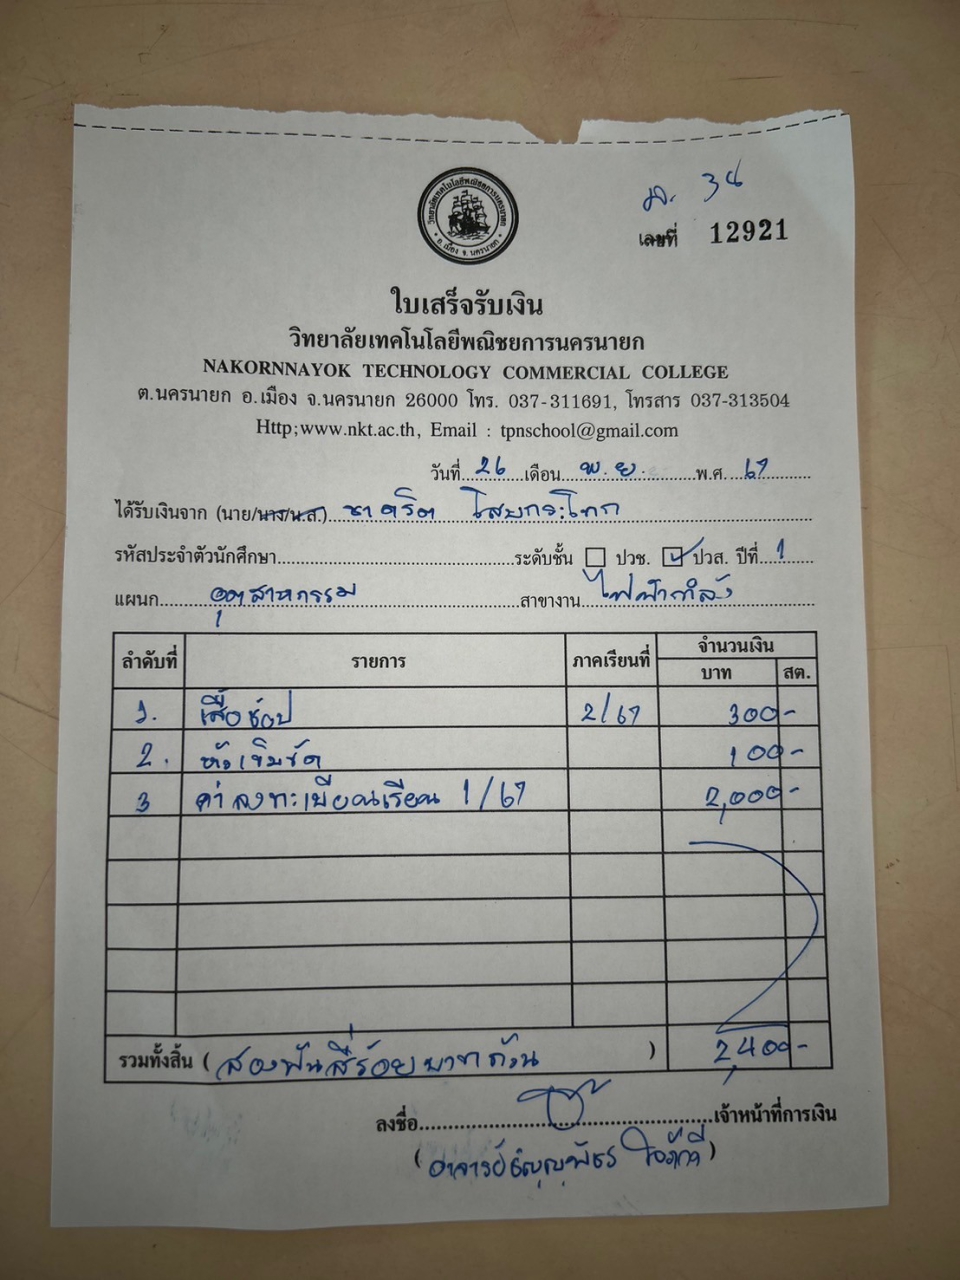 วิทยาลัยเทคโนโลยีพณิชยการนครนายก
อ.เมือง จ.นครนายก
เลขที่ 12921
ใบเสร็จรับเงิน
วิทยาลัยเทคโนโลยีพณิชยการนครนายก
NAKORNNAYOK TECHNOLOGY COMMERCIAL COLLEGE
ต.นครนายก อ.เมือง จ.นครนายก 26000 โทร. 037-311691, โทรสาร 037-313504
Http;www.nkt.ac.th, Email : tpnschool@gmail.com
วันที่ 26 เดือน พ.ย. พ.ศ. 67
ได้รับเงินจาก (นาย/นาง/น.ส.) ชาคริต โสยกระโทก
รหัสประจำตัวนักศึกษา ระดับชั้น ปวช. ปวส. ปีที่ 1
แผนก อุตสาหกรรม สาขางาน ไฟฟ้ากำลัง
ลำดับที่ รายการ ภาคเรียนที่ จำนวนเงิน
บาท สต.
1. เสื้อช้อป 2/67 300 -
2. หัวเข็มขัด 100 -
3 ค่าลงทะเบียนเรียน 1/67 2,000 -
รวมทั้งสิ้น ( สองพันสี่ร้อยบาทถ้วน ) 2,400 -
ลงชื่อ เจ้าหน้าที่การเงิน
(อาจารย์ธัญญพัธร )